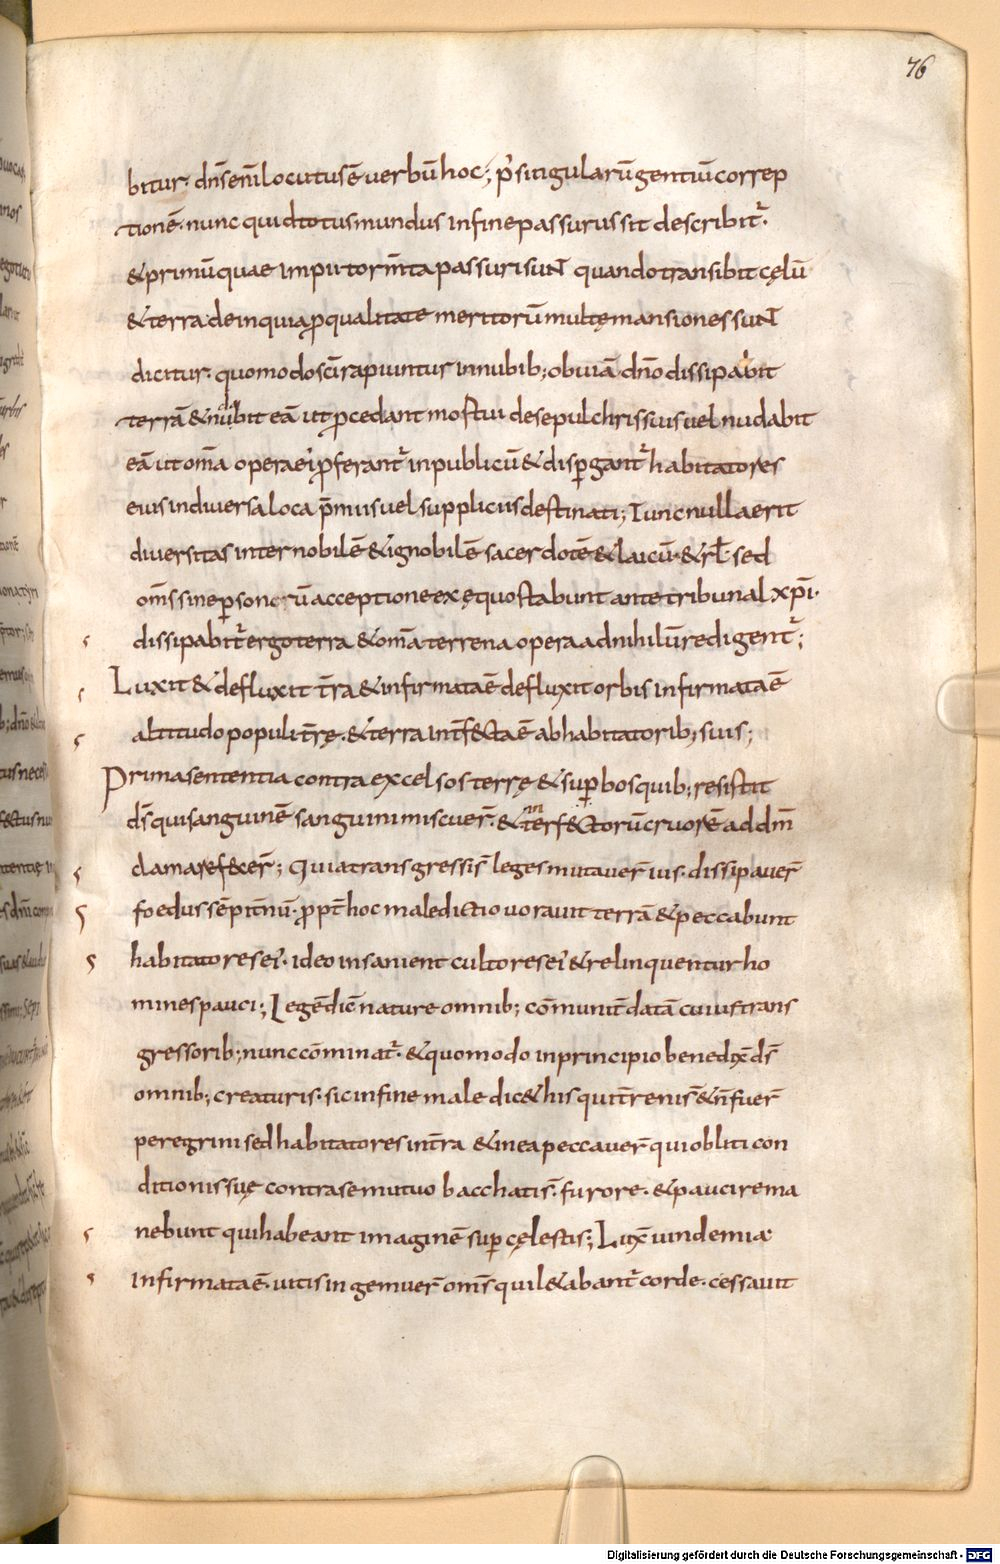 76
bitur· dn̄s eni᷃ locutus ē uerbū hoc; p᷎ sitigularū gentiū correp
tionē· nunc quid totus mundus in fine passurus sit describit᷎·
& primū quae impii torm̅ta passuri sunt quando transibit cęlū
& terra· dein quia ꝓ qualitate meritorū multę mansiones sunt
dicitur· quomodo sc̄i rapiuntur in nubib; obuiā dn̄o dissipabit
terrā & nudabit eā ut ꝓcedant mortui de sepulchris suis uel nudabit
eā ut om̄a opera ei᷎ ꝓferant᷎ in publicū & disꝑgant᷎ habitatores
eius in diuersa loca p̄miis uel suppliciis destinati; Tunc nulla erit
diuersitas inter nobilē & ignobilē sacerdotē & laicū· & rl̄· sed
om̄s sine ꝑsonarū acceptione ex ęquo stabunt ante tribunal xp̄i·
dissipabit᷎ ergo terra & om̄a terrena opera ad nihilū redigent᷎;
Luxit & defluxit t̄ra & infirmata ē defluxit orbis infirmata ē
altitudo populi t̄rę· & terra int̄fecta ē ab habitatorib; suis;
Prima sententia contra excelsos terrę & suꝑbos quib; resistit
ds̄ qui sanguinē sanguini miscuer̄· & interfectorū cruorē ad dm̄
clamare fecer̄; Quia transgressi s̄ leges mutauer̄ ius· dissipauer̄
foedus sēpit̄nū· ꝓpt̄ hoc maledictio uorauit terrā & peccabunt
habitatores ei᷎· ideo insanient cultores ei᷎ & relinquentur ho
mines pauci; Legē dic̄ nature omnib; cōmunit̄ datā cuius trans
gressorib; nunc cōminat᷎· & quomodo in principio benedix̄ ds̄
omnib; creaturis· sic in fine maledic& his qui t̄reni s̄ & n̄ fuer̄
peregrini sed habitatores in t̄ra & in ea peccauer̄ qui obliti con
ditionis suę contra se mutuo bacchati s̄· furore· & pauci rema
nebunt qui habeant imaginē suꝑcęlestis; Lux̄ uindemia
infirmata ē· uitis ingemuer̄ om̄s qui l&abant᷎ corde· cessauit
Digitalisierung gefördert durch die Deutsche Forschungsgemeinschaft - DFG